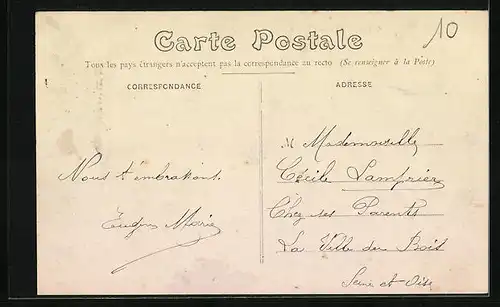 Carte Postale
10
Tous les pays étrangers n'acceptent pas la correspondance au recto (Se renseigner à la Poste)
CORRESPONDANCE
ADRESSE
M Mademoiselle
Cécile Lamprier
Chez ses Parents
La Ville du Bois
Seine et Oise
Nous t'embrassons.
Marie